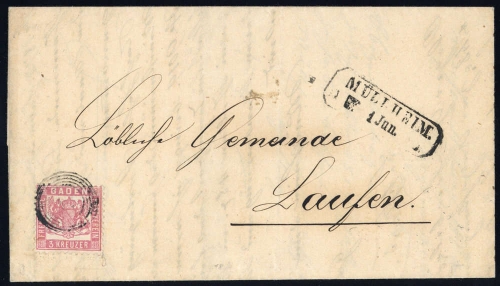 MÜLLHEIM.
1 Jan.
Löbliche Gemeinde
Laufen.
BADEN
3 KREUZER